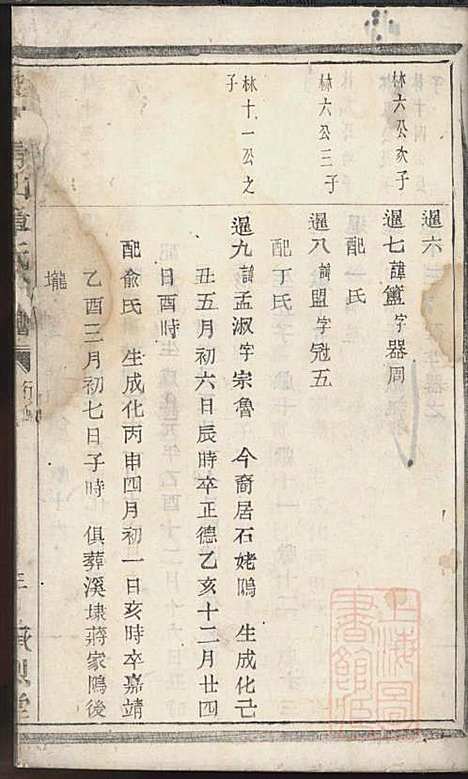 林六公次子
暹六
暹七 諱簠字器周
配一氏
林六公三子
暹八 諱盟字冠五
配丁氏
林十一公之子
暹九 諱孟淑字宗魯 今裔居石姥隝 生成化己
丑五月初六日辰時卒正德乙亥十二月廿四
日酉時
配俞氏 生成化丙申四月初一日亥時卒嘉靖
乙酉三月初七日子時 俱葬溪埭蔣家隝後
壠
上海圖書館